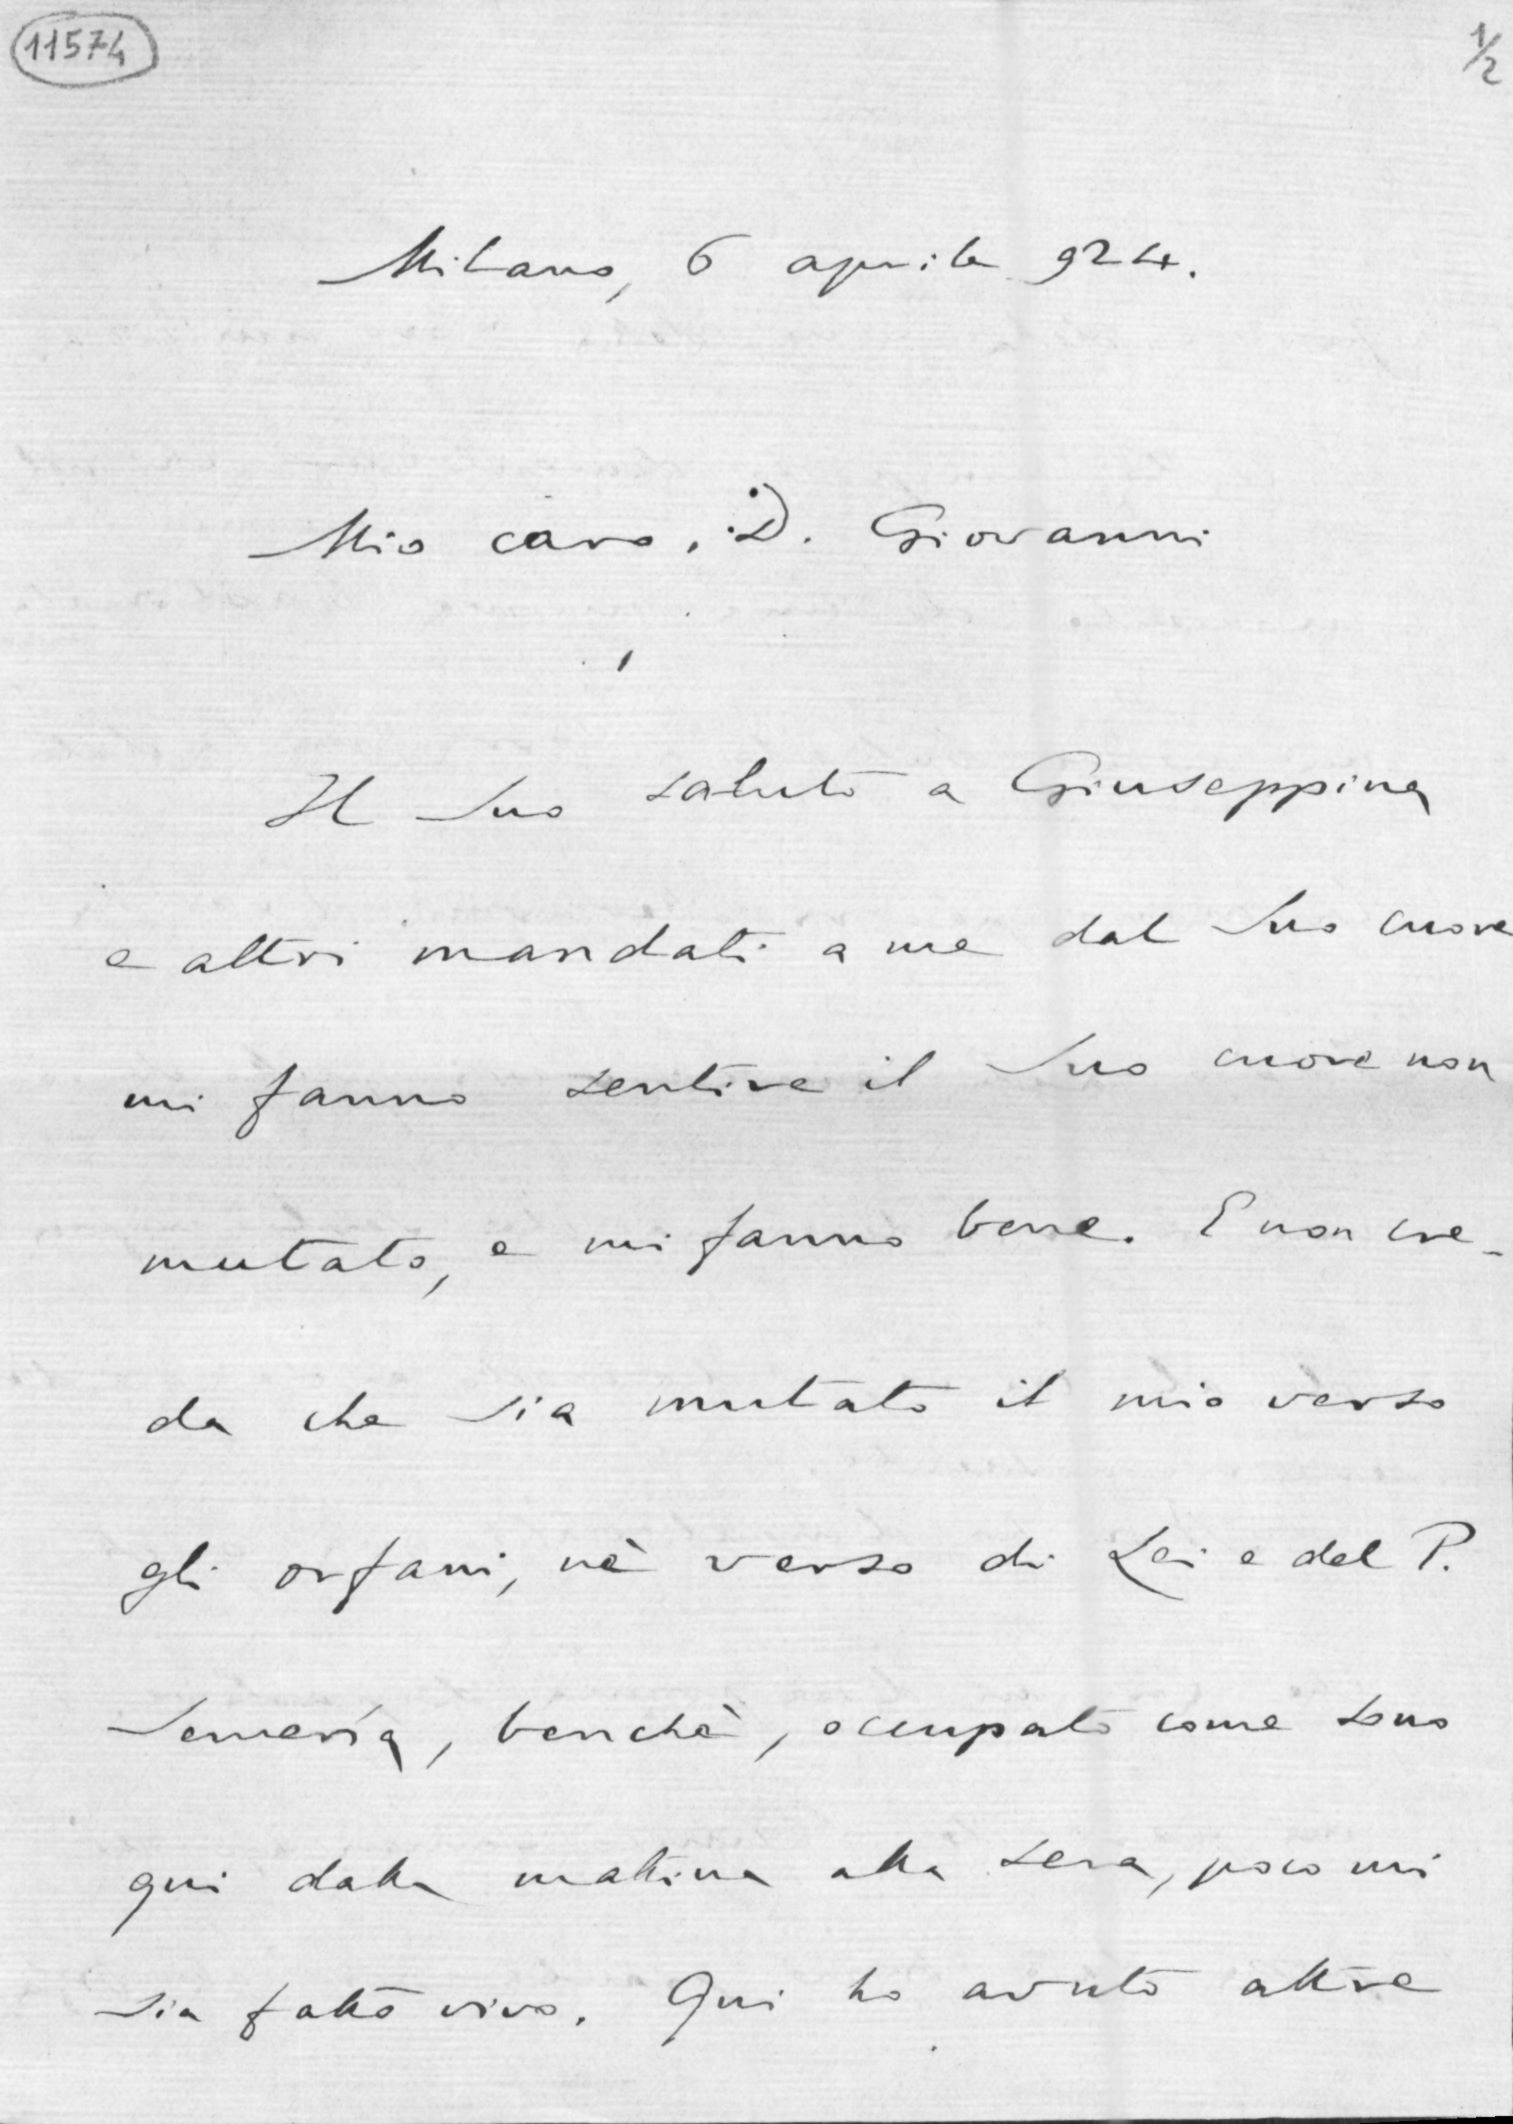 11574
1/2
Milano, 6 aprile 924.
Mio caro D. Giovanni
Il Suo saluto a Giuseppina
e altri mandati a me dal Suo cuore
mi fanno sentire il Suo cuore non
mutato, e mi fanno bene. E non cre-
da che sia mutato il mio verso
gli orfani, nè verso di Lei e del P.
Semeria, benchè, occupato come sono
qui dalla mattina alla sera, poco mi
sia fatto vivo. Qui ho avuto altre